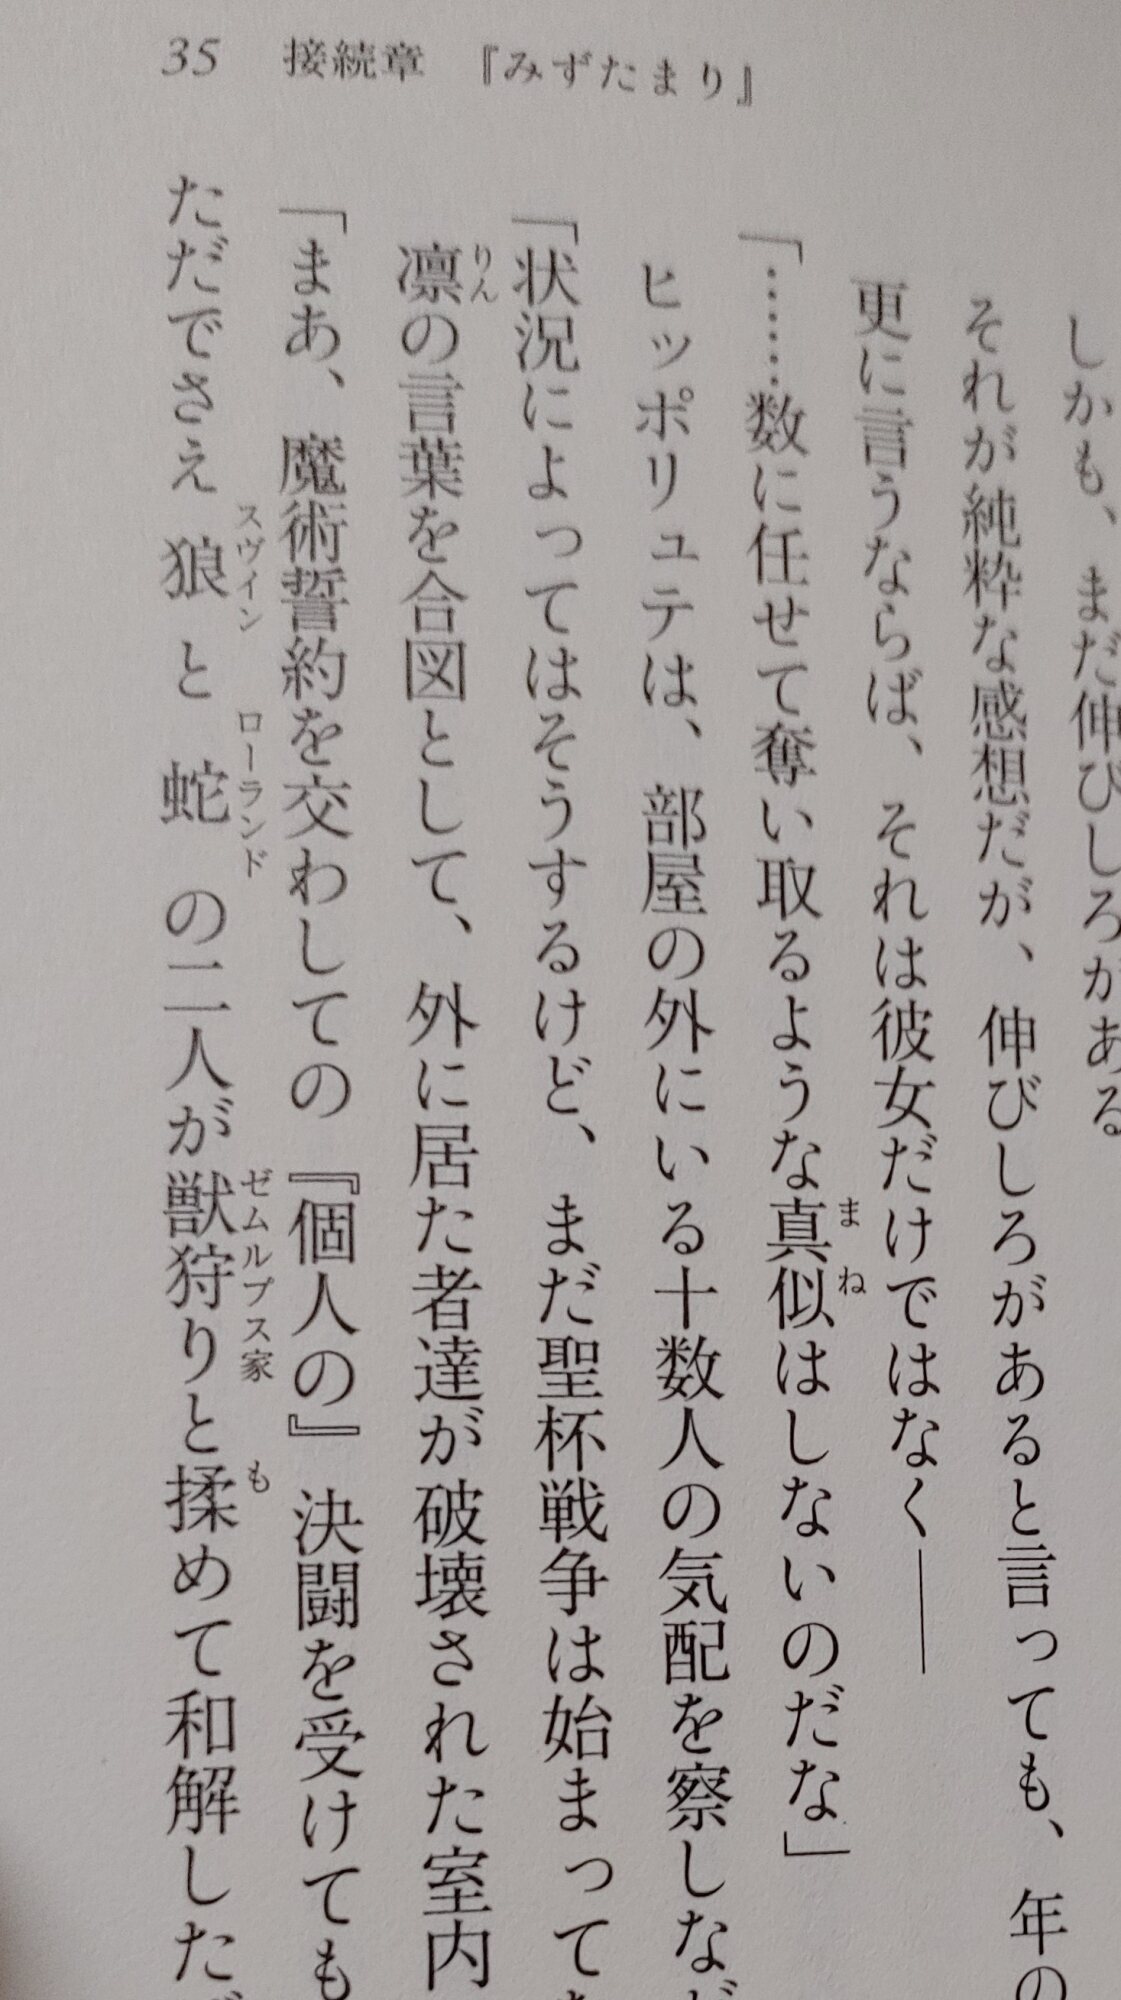 35　接続章　『みずたまり』
しかも、まだ伸びしろがある
それが純粋な感想だが、伸びしろがあると言っても、年の
更に言うならば、それは彼女だけではなく――
「……数に任せて奪い取るような真似はしないのだな」
ヒッポリュテは、部屋の外にいる十数人の気配を察しなが
「状況によってはそうするけど、まだ聖杯戦争は始まって
凛の言葉を合図として、外に居た者達が破壊された室内
「まあ、魔術誓約を交わしての『個人の』決闘を受けても
ただでさえ狼と蛇の二人が獣狩りと揉めて和解した